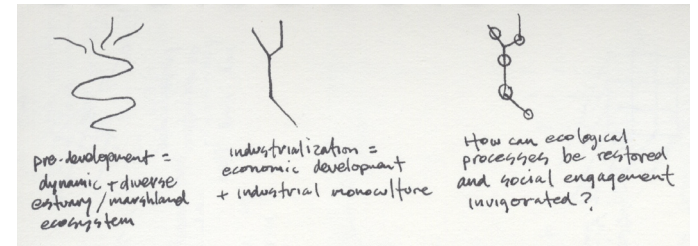 pre-development =
dynamic + diverse
estuary/marshland
ecosystem
industrialization =
economic development
+ industrial monoculture
How can ecological
processes be restored
and social engagement
invigorated?